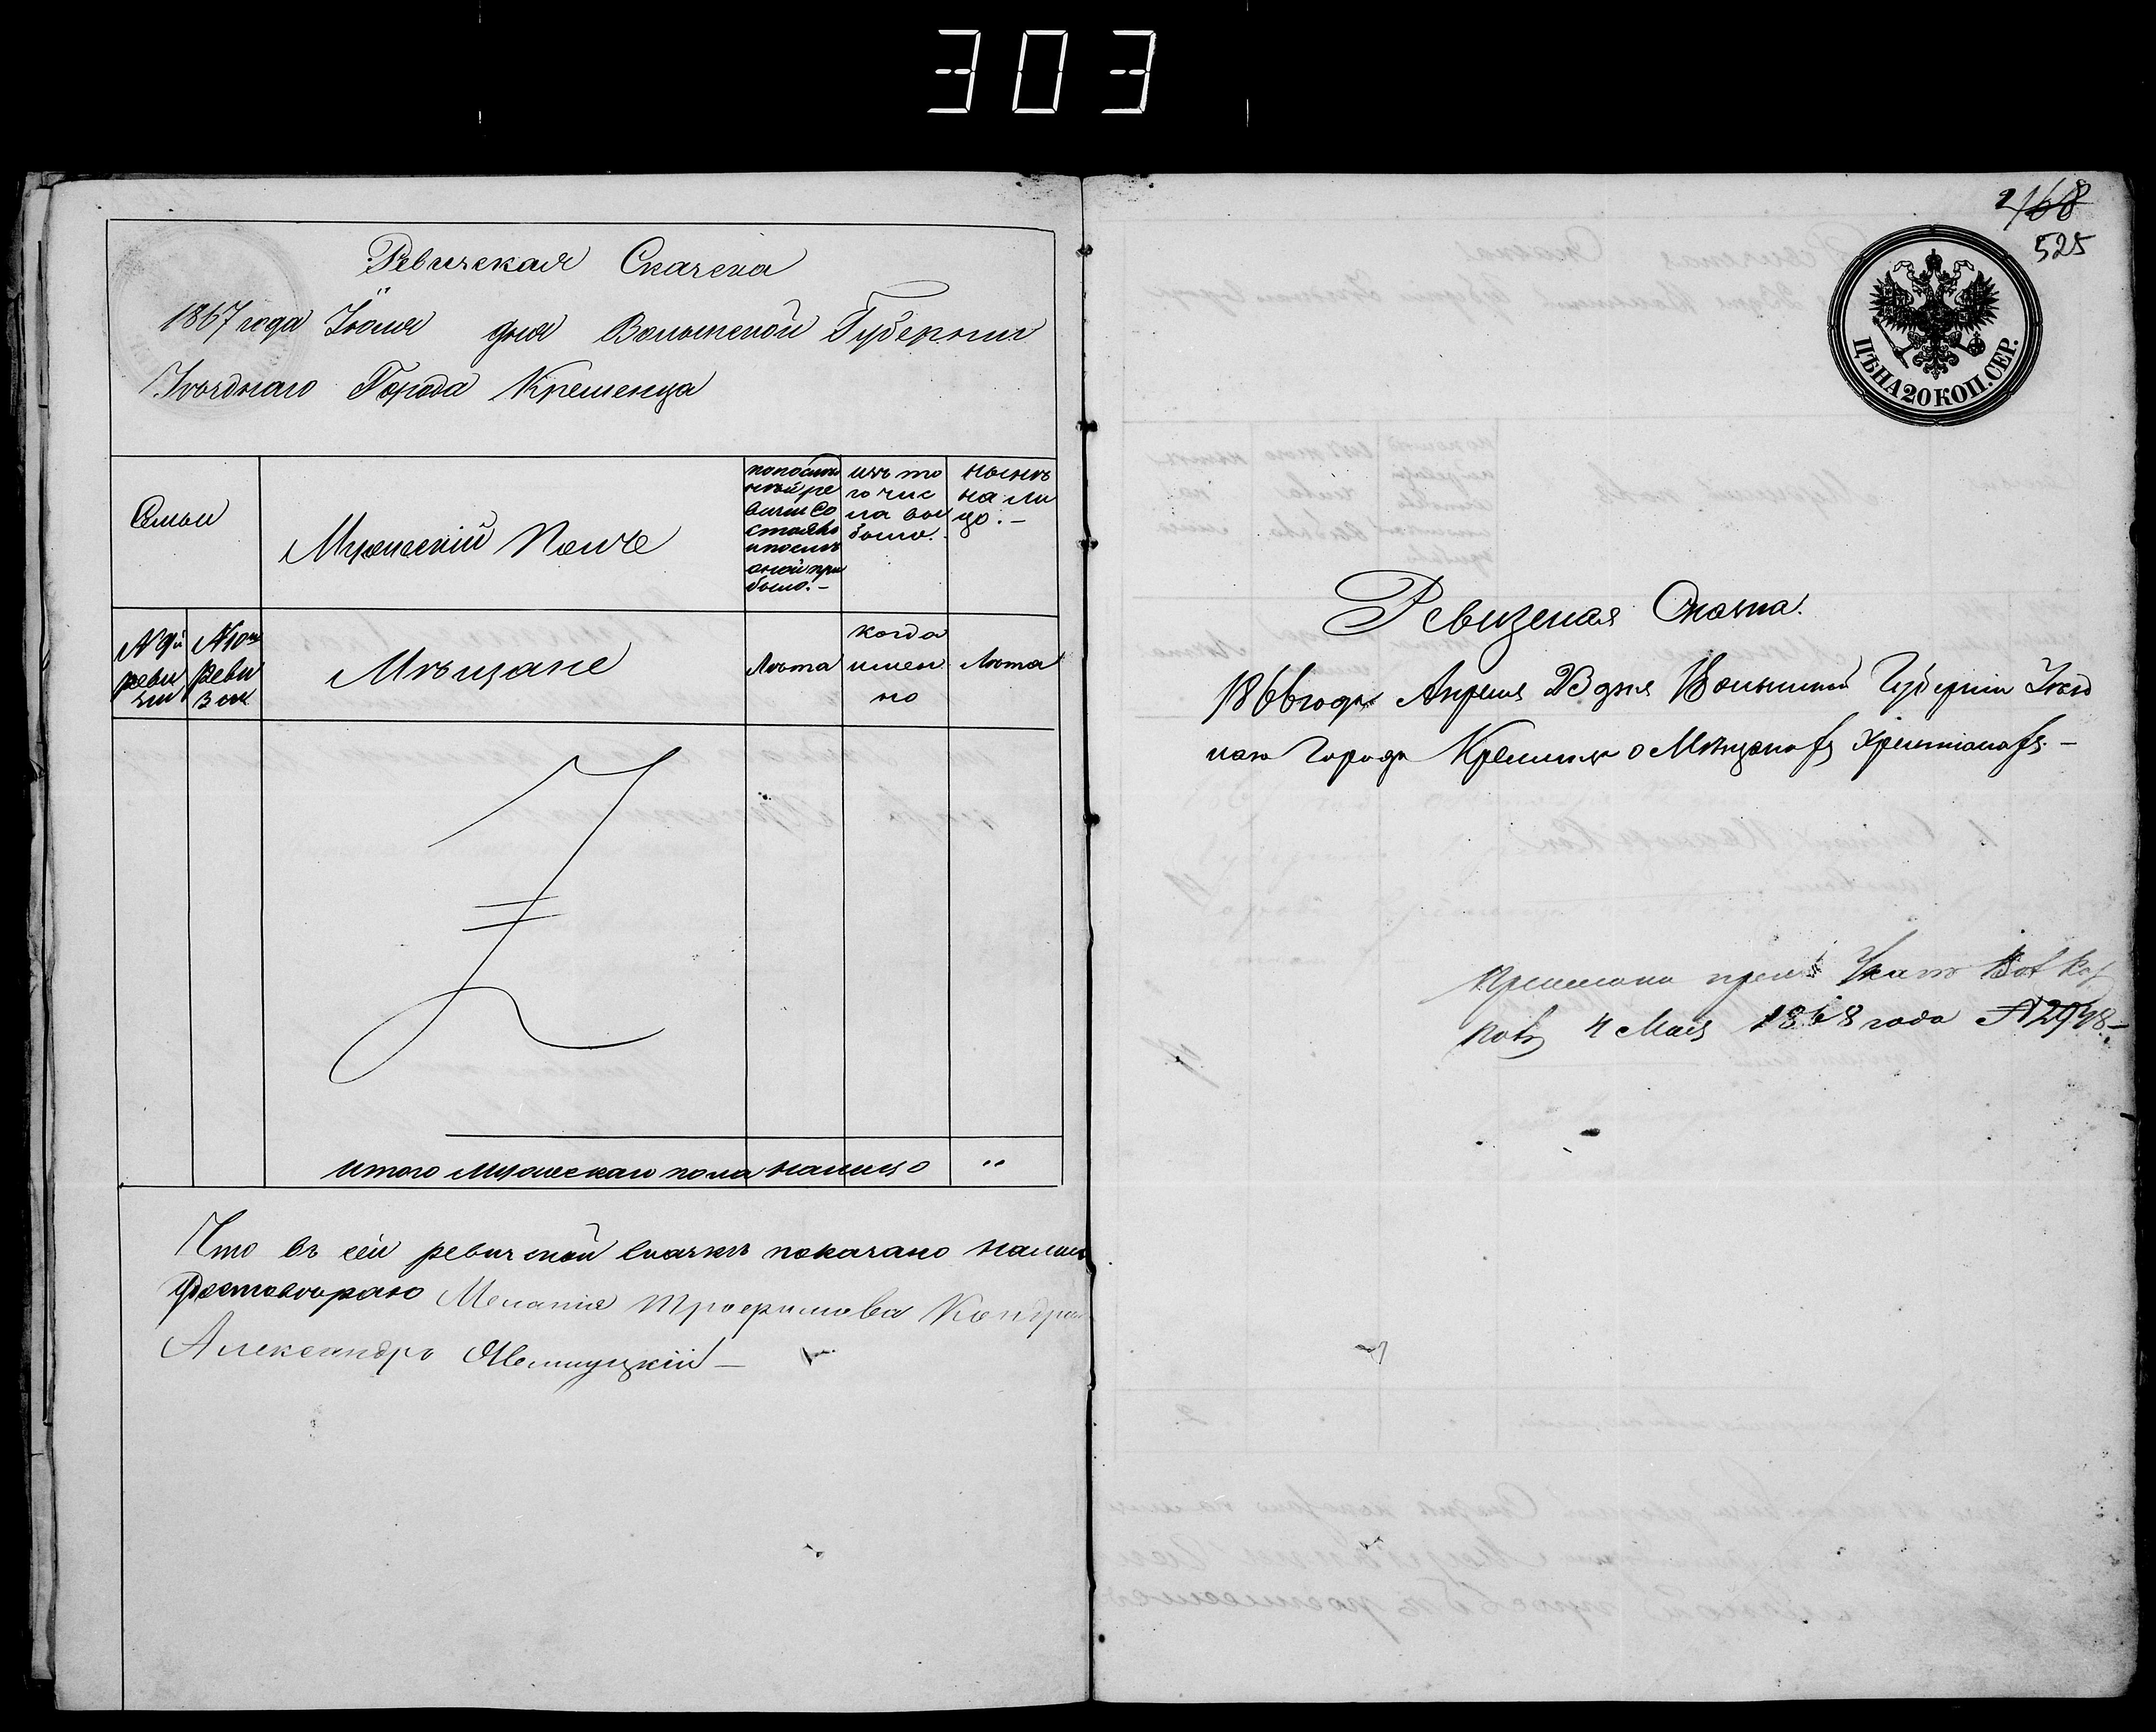 303
Ревизская Сказка
1867 года Іюня дня Волынской Губерніи
Уѣзднаго Города Кременца
Семьи
Мужескій Полъ
по послѣд
ней ре
визіи со
стояло
и послѣ
оной при
было.-
изъ то
го чис
ла вы
было.
нынѣ
на ли
цо.-
№ 9й
реви
зіи
№ 10й
Реви
зіи
Мѣщане
Лѣта
когда
имен
но
Лѣта
итого мужескаго пола налицо "
Что въ сей ревизской сказкѣ показано
Меланія Трофимова
Александръ
2/168
525
ЦѢНА 20 КОП. СЕР.
Ревизская Сказка.
186 года Апрѣля 23 дня Волынской Губерніи Уѣзд
наго Города Кременца о Мѣщанахъ Христіанахъ.-
при Указѣ
4 Мая 1868 года № 2948.-